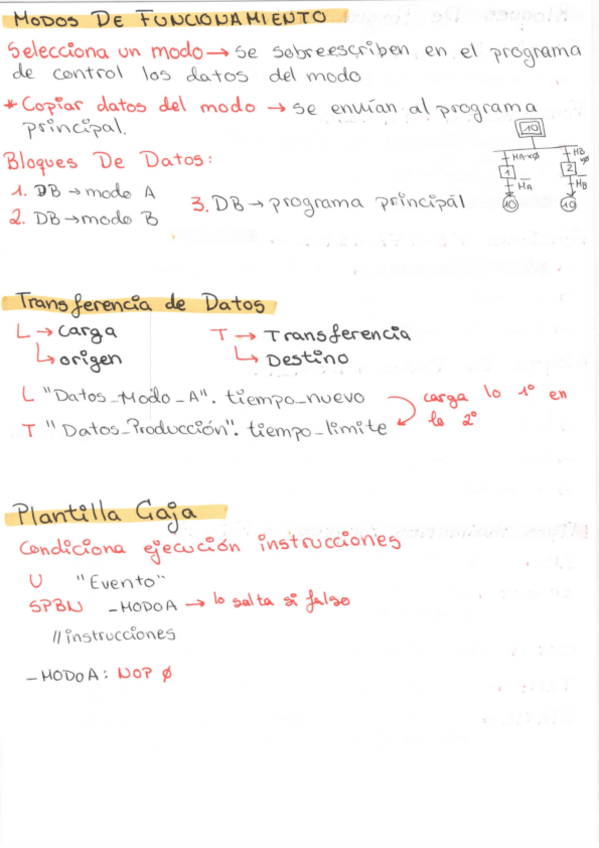 MODOS DE FUNCIONAMIENTO
Selecciona un modo → se sobreescriben en el programa
de control los datos del modo
* Copiar datos del modo → se envían al programa
principal.
10
HA·xø
HB
xø
1
2
HA
HB
10
10
Bloques De Datos:
1. DB → modo A
2. DB → modo B
3. DB → programa principal
Transferencia de Datos
L → carga
↳ origen
T → Transferencia
↳ Destino
L "Datos_Modo_A". tiempo_nuevo
T "Datos_Producción". tiempo_limite
carga lo 1º en
lo 2º
Plantilla Caja
Condiciona ejecución instrucciones
U "Evento"
SPBN _MODOA → lo salta si falso
//instrucciones
_MODOA: NOP ø